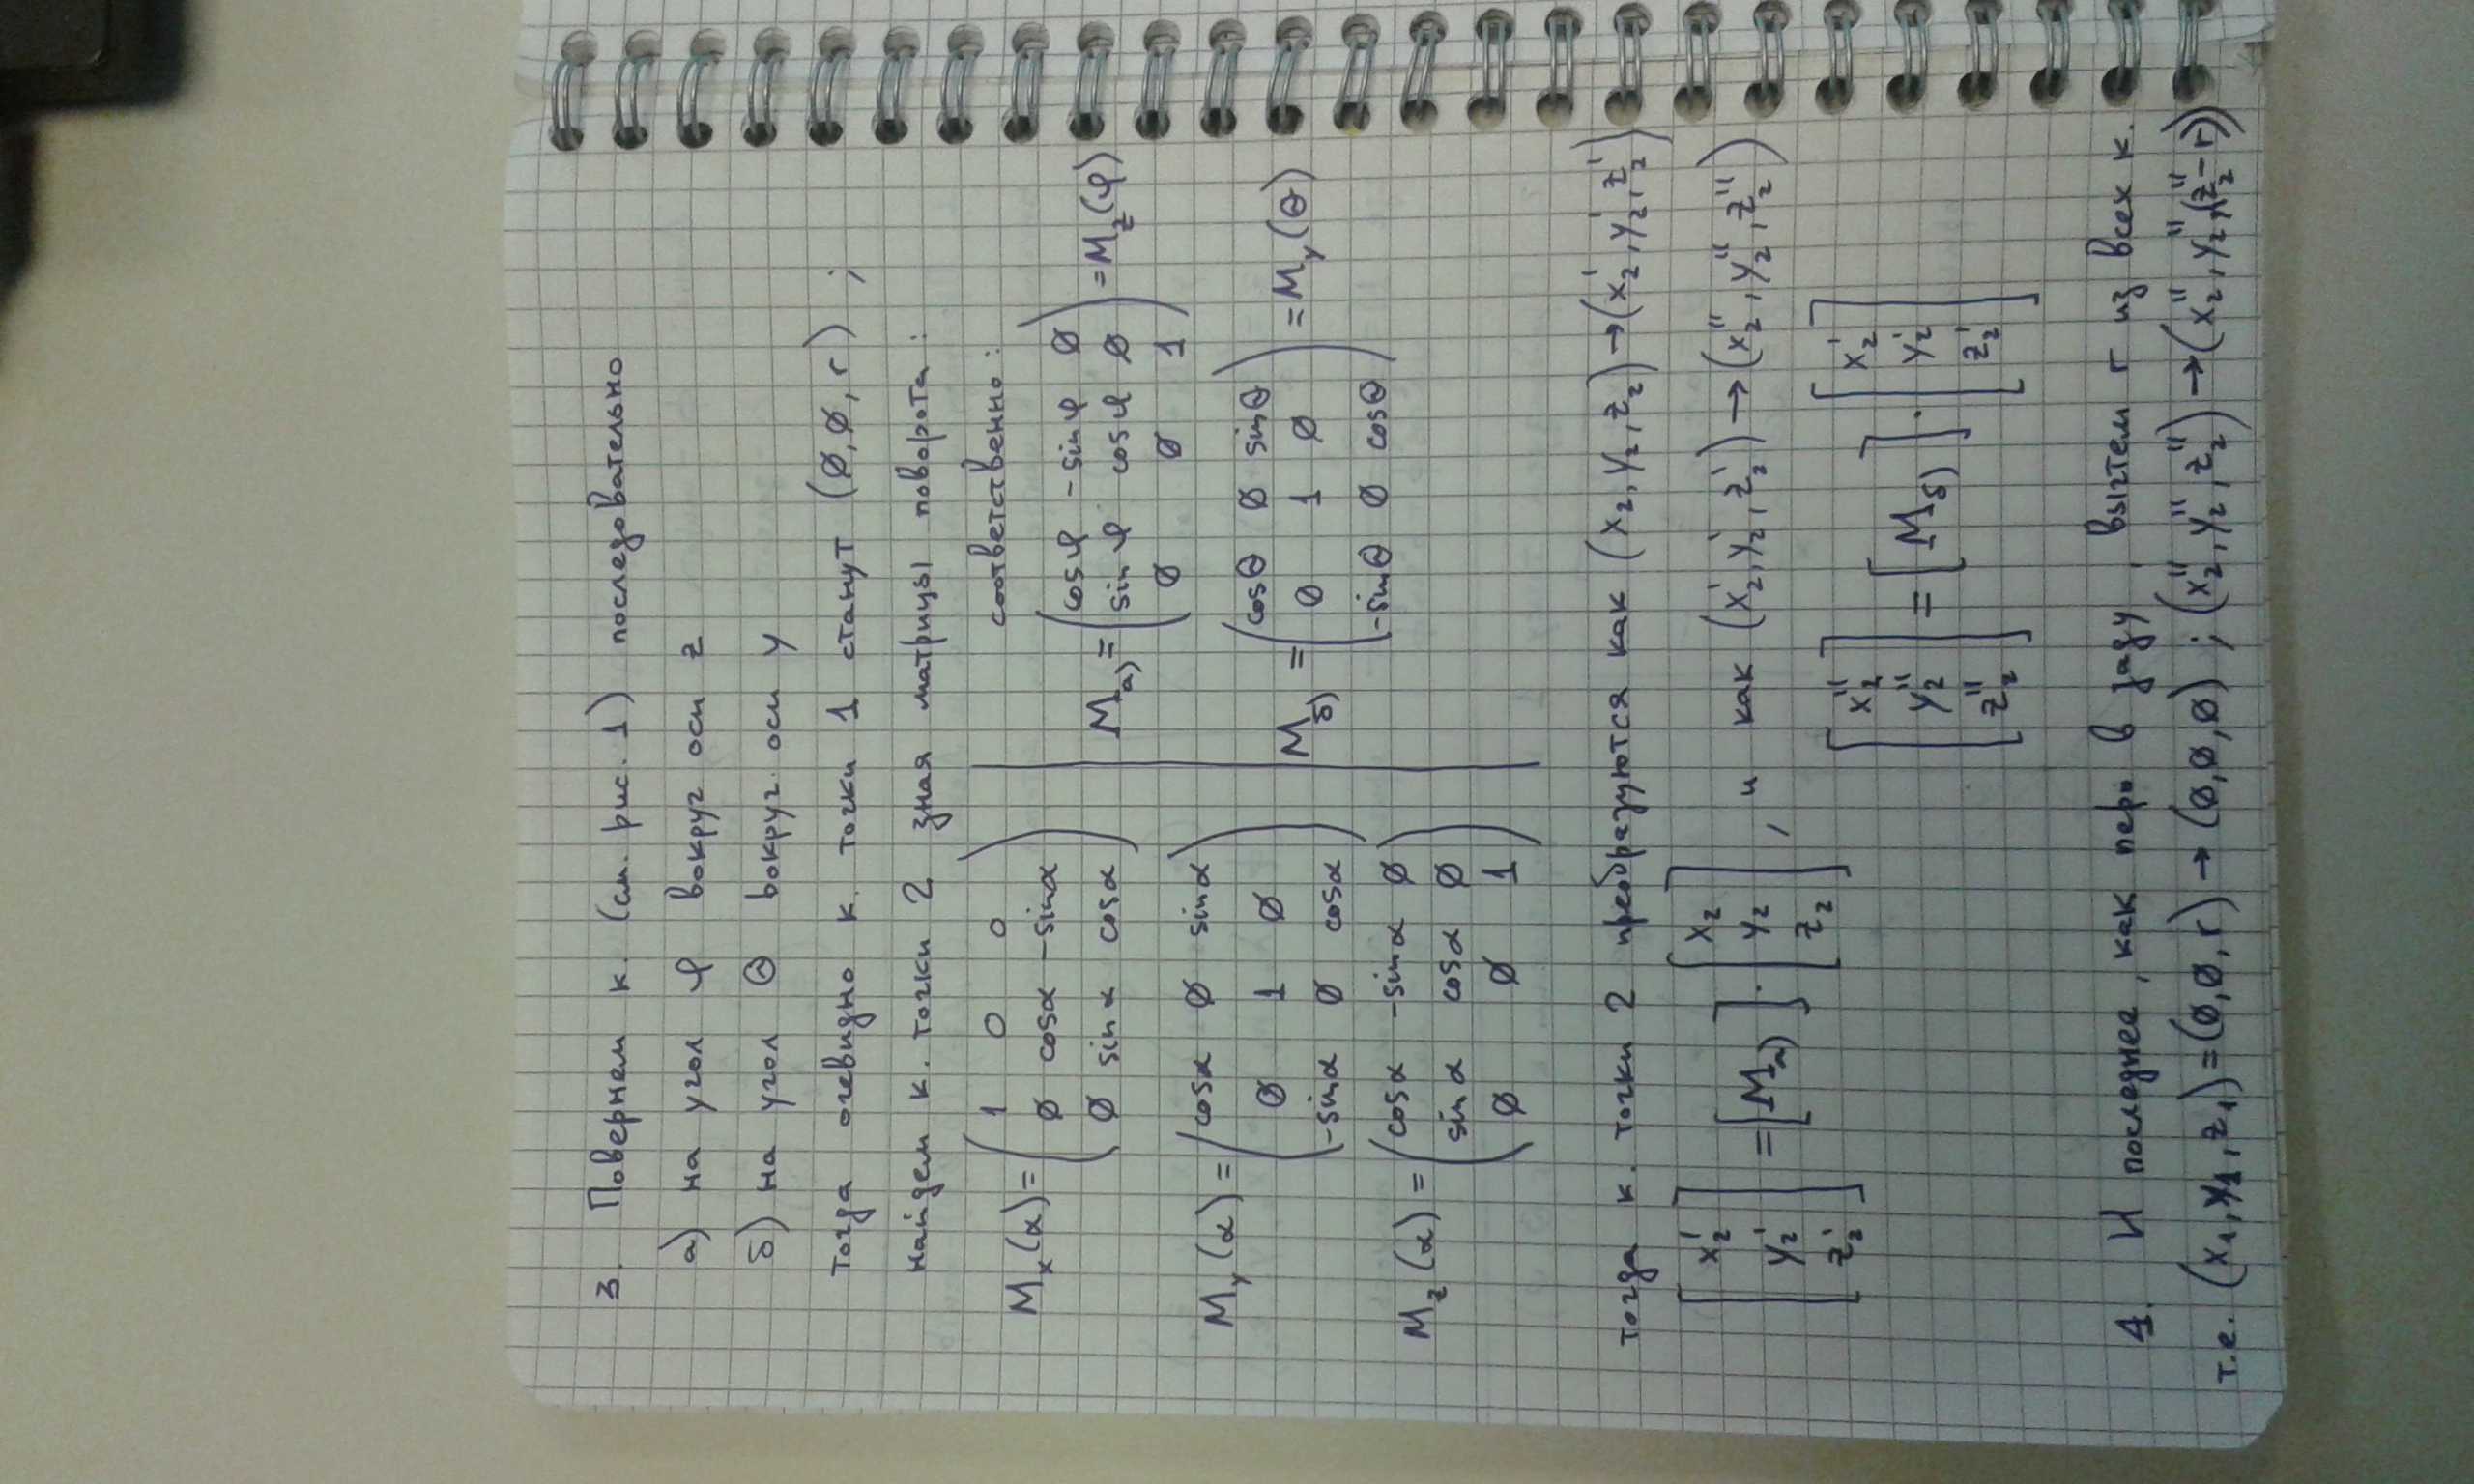 3. Повернем к. (см. рис. 1) последовательно
а) на угол φ вокруг оси z
б) на угол Θ вокруг. оси y
тогда очевидно к. точки 1 станут (Ø, Ø, r) ;
найдем к. точки 2 зная матрицы поворота:
соответственно:
Mx(α) = ( 1 0 0
Ø cosα -sinα
Ø sinα cosα )
My(α) = ( cosα Ø sinα
Ø 1 Ø
-sinα Ø cosα )
Mz(α) = ( cosα -sinα Ø
sinα cosα Ø
Ø Ø 1 )
Mа) = ( cosφ -sinφ Ø
sinφ cosφ Ø
Ø Ø 1 ) = Mz(φ)
Mб) = ( cosΘ Ø sinΘ
0 1 Ø
-sinΘ Ø cosΘ ) = My(Θ)
тогда к. точки 2 преобразуются как (x₂, y₂, z₂) → (x₂', y₂', z₂')
[ x₂' y₂' z₂' ] = [Mа)] · [ x₂ y₂ z₂ ] , и как (x₂', y₂', z₂') → (x₂'', y₂'', z₂'')
[ x₂'' y₂'' z₂'' ] = [Mб)] · [ x₂' y₂' z₂' ]
4. И последнее, как пер. в заду, вычтем r из всех к.
т.е. (x₁, y₁, z₁) = (Ø, Ø, r) → (Ø, Ø, Ø) ; (x₂'', y₂'', z₂'') → (x₂'', y₂'', (z₂'' - r))